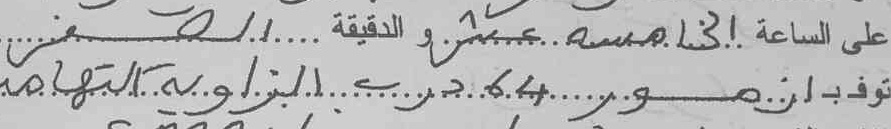 على الساعة الخامسة عشر و الدقيقة الصفر
توفي بـ 64 درب الزاوية التهامية